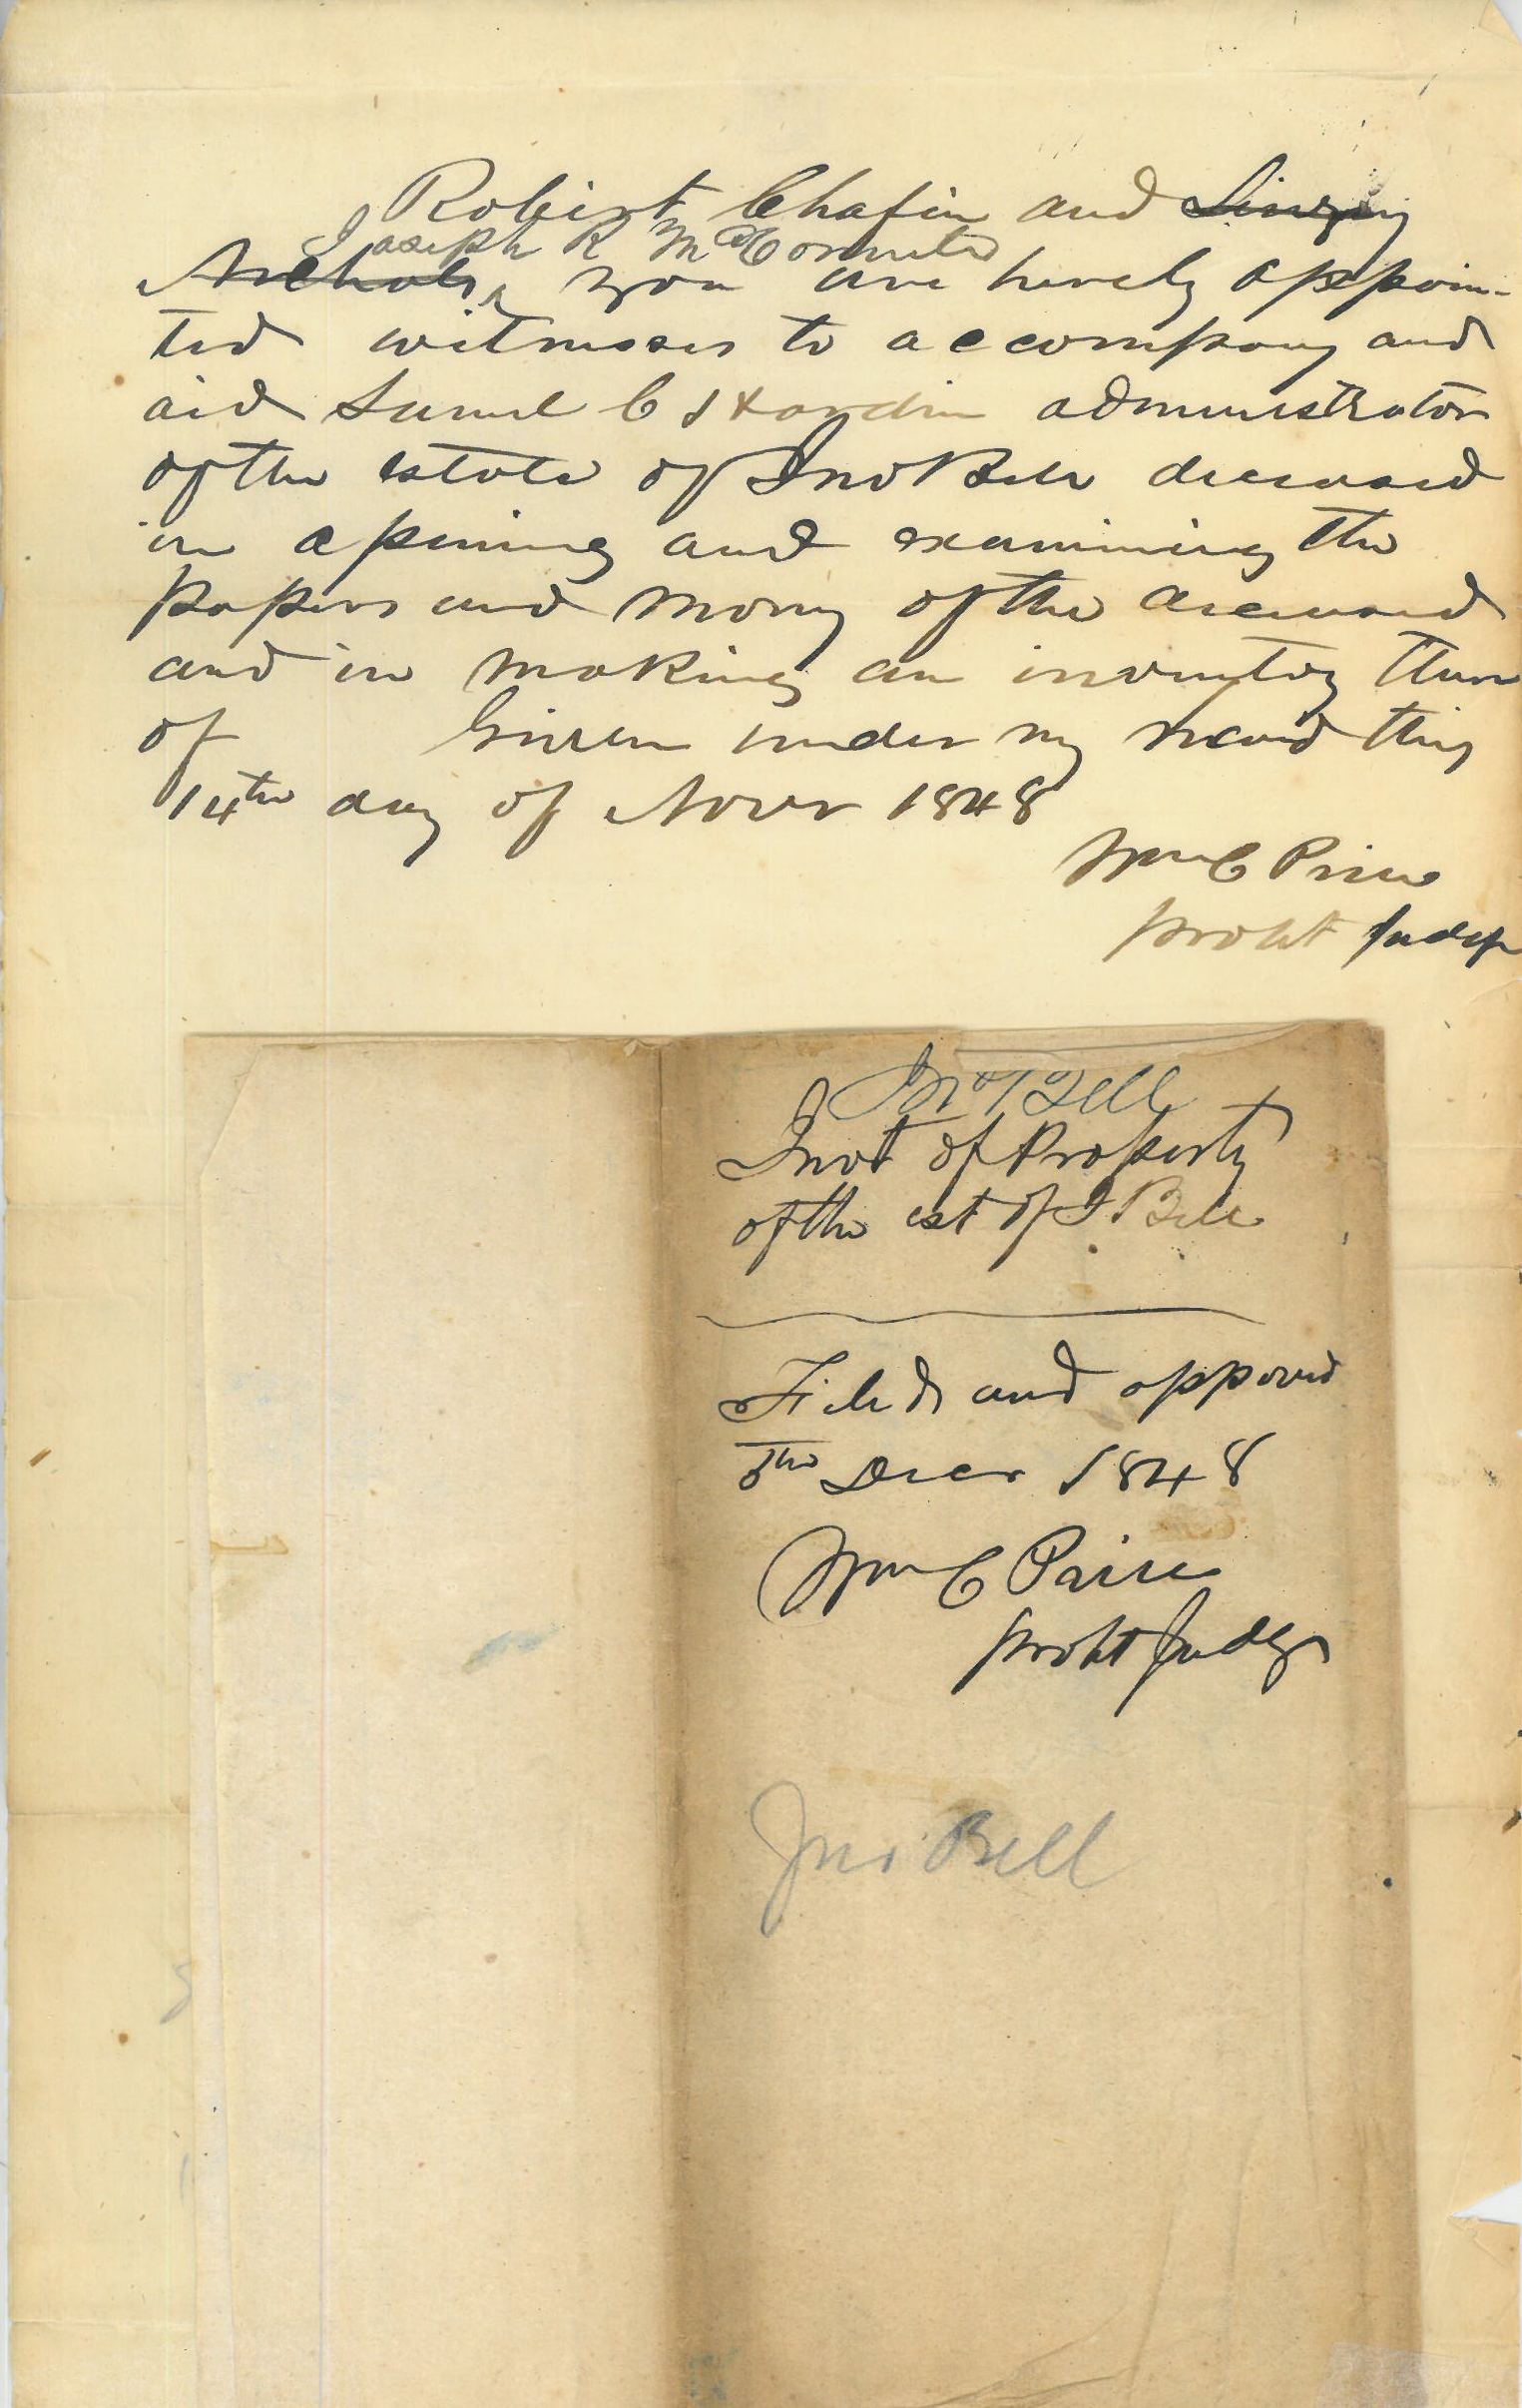 Robert Chafin and Linzey
Joseph R McConnel
Nichols you are hereby appoin-
ted witnesses to accompany and
aid Samuel C Hardin administrator
of the estate of Jno Bell deceased
in opening and examining the
papers and money of the deceased
and in making an inventory there
of Given under my hand this
14th day of Novr 1848
Wm C Price
Probt Judge
Jno Bell
Invt of Property
of the est of J Bell
Filed and approved
5th Decr 1848
Wm C Price
Probt Judge
Jno Bell